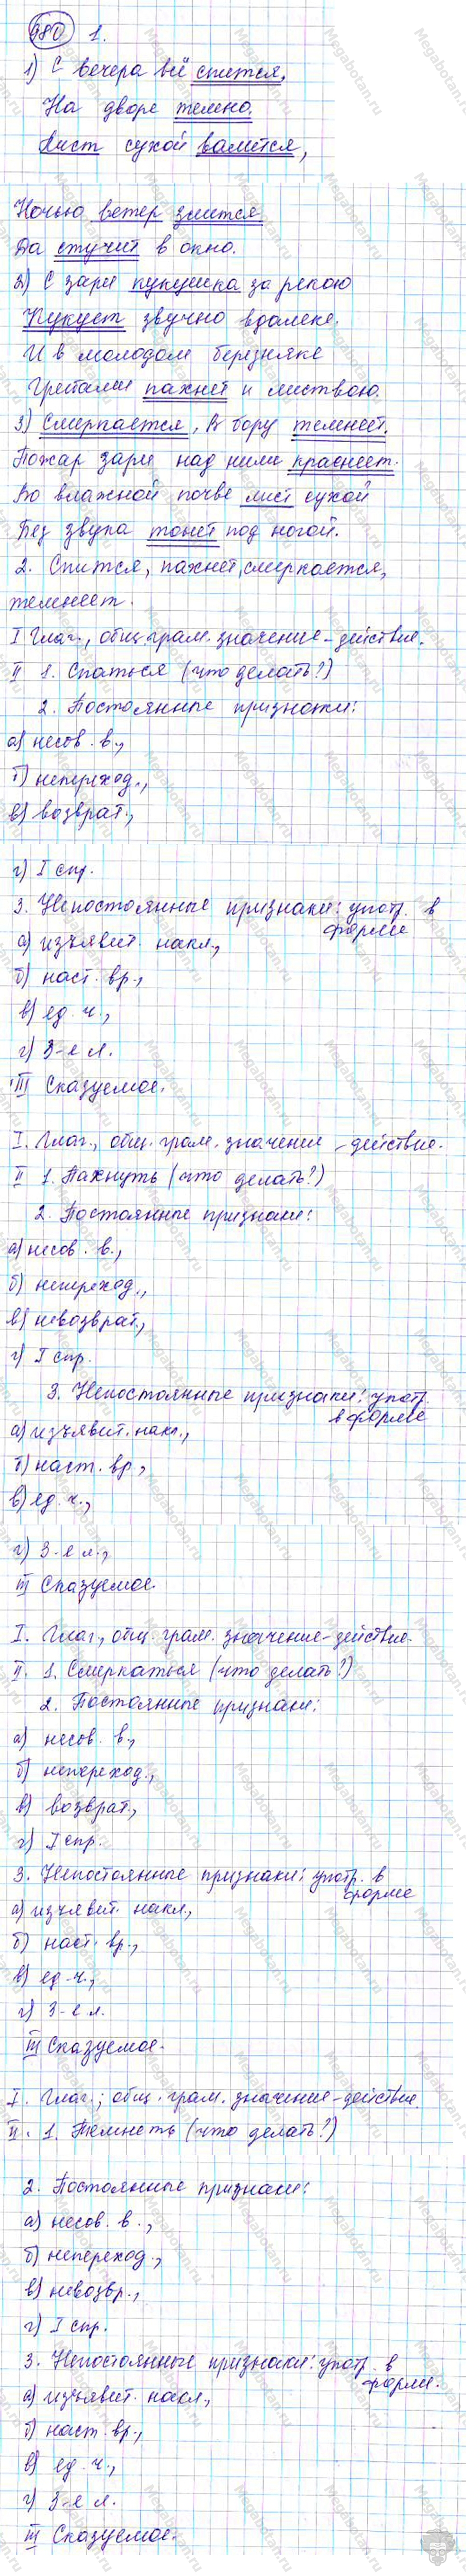 980 1.
1) С вечера всё спится,
На дворе темно.
Лист сухой валится,
Ночью ветер злится
Да стучит в окно.
2) С зари кукушка за рекою
Кукует звучно вдалеке.
И в молодом березняке
Грибами пахнет и листвою.
3) Смеркается, в бору темнеет.
Пожар зари над ними краснеет.
Во влажной почве лист сухой
Без звука тонет под ногой.
2. Спится, пахнет, смеркается,
темнеет.
I Глаг., общ. грам. значение - действие.
II 1. Спаться (что делать?)
2. Постоянные признаки:
а) несов. в.,
б) непереход.,
в) возврат.,
г) I спр.
3. Непостоянные признаки: употр. в
форме
а) изъявит. накл.,
б) наст. вр.,
в) ед. ч.,
г) 3-е л.
III Сказуемое.
I. Глаг., общ. грам. значение - действие.
II 1. Пахнуть (что делать?)
2. Постоянные признаки:
а) несов. в.,
б) непереход.,
в) невозврат.,
г) I спр.
3. Непостоянные признаки: употр.
в форме
а) изъявит. накл.,
б) наст. вр.,
в) ед. ч.,
г) 3-е л.,
III Сказуемое.
I. Глаг., общ. грам. значение - действие.
II. 1. Смеркаться (что делать?)
2. Постоянные признаки:
а) несов. в.,
б) непереход.,
в) возврат.,
г) I спр.
3. Непостоянные признаки: употр. в
форме
а) изъявит. накл.,
б) наст. вр.,
в) ед. ч.,
г) 3-е л.
III Сказуемое.
I. Глаг.; общ. грам. значение - действие.
II. 1. Темнеть (что делать?)
2. Постоянные признаки:
а) несов. в.,
б) непереход.,
в) невозвр.,
г) I спр.
3. Непостоянные признаки: употр. в
форме.
а) изъявит. накл.,
б) наст. вр.,
в) ед. ч.,
г) 3-е л.
III Сказуемое.
Megabotan.ru